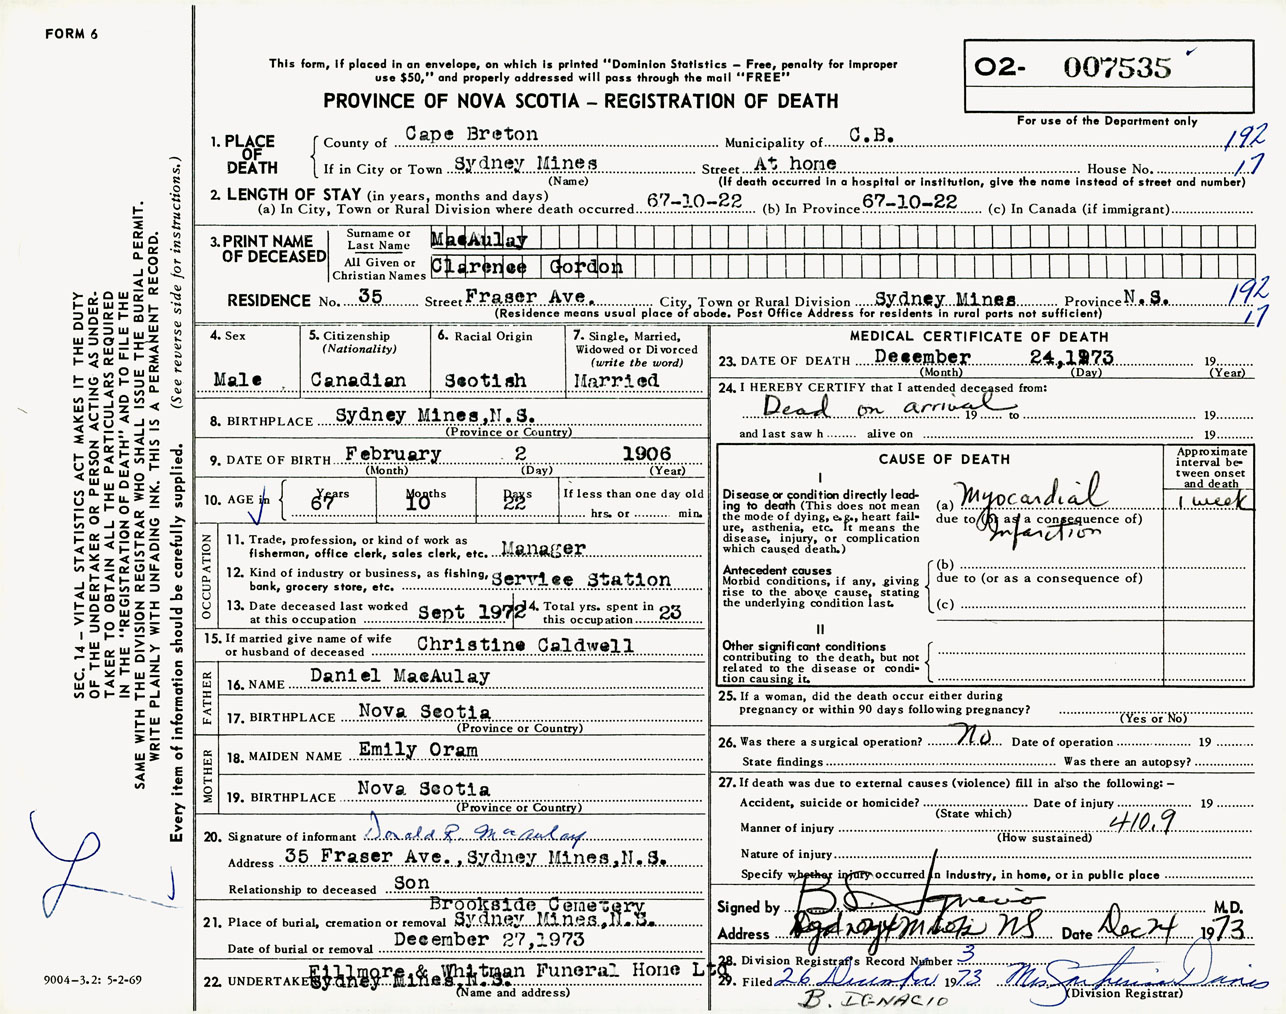 FORM 6
This form, if placed in an envelope, on which is printed "Dominion Statistics – Free, penalty for improper
use $50," and properly addressed will pass through the mail "FREE"
PROVINCE OF NOVA SCOTIA – REGISTRATION OF DEATH
O2- 007535
For use of the Department only
1. PLACE OF DEATH County of Cape Breton Municipality of C.B. 192
If in City or Town Sydney Mines Street At home House No. 17
(Name) (If death occurred in a hospital or institution, give the name instead of street and number)
2. LENGTH OF STAY (in years, months and days)
(a) In City, Town or Rural Division where death occurred 67-10-22 (b) In Province 67-10-22 (c) In Canada (if immigrant)
3. PRINT NAME OF DECEASED Surname or Last Name MacAulay
All Given or Christian Names Clarence Gordon
RESIDENCE No. 35 Street Fraser Ave. City, Town or Rural Division Sydney Mines Province N.S. 192
(Residence means usual place of abode. Post Office Address for residents in rural parts not sufficient) 17
4. Sex
Male
5. Citizenship
(Nationality)
Canadian
6. Racial Origin
Scotish
7. Single, Married,
Widowed or Divorced
(write the word)
Married
8. BIRTHPLACE Sydney Mines, N.S.
(Province or Country)
9. DATE OF BIRTH February 2 1906
(Month) (Day) (Year)
10. AGE in Years 67 Months 10 Days 22 If less than one day old
hrs. or min.
OCCUPATION
11. Trade, profession, or kind of work as
fisherman, office clerk, sales clerk, etc. Manager
12. Kind of industry or business, as fishing,
bank, grocery store, etc. Service Station
13. Date deceased last worked
at this occupation Sept 1972
14. Total yrs. spent in
this occupation 23
15. If married give name of wife
or husband of deceased Christine Caldwell
FATHER
16. NAME Daniel MacAulay
17. BIRTHPLACE Nova Scotia
(Province or Country)
MOTHER
18. MAIDEN NAME Emily Oram
19. BIRTHPLACE Nova Scotia
(Province or Country)
20. Signature of informant Donald R. MacAulay
Address 35 Fraser Ave., Sydney Mines, N.S.
Relationship to deceased Son
Brookside Cemetery
21. Place of burial, cremation or removal Sydney Mines, N.S.
Date of burial or removal December 27, 1973
Fillmore & Whitman Funeral Home Ltd
22. UNDERTAKER Sydney Mines, N.S.
(Name and address)
MEDICAL CERTIFICATE OF DEATH
23. DATE OF DEATH December 24, 1973 19
(Month) (Day) (Year)
24. I HEREBY CERTIFY that I attended deceased from:
Dead on arrival 19 to 19
and last saw h alive on 19
CAUSE OF DEATH
Approximate
interval be-
tween onset
and death
I
Disease or condition directly lead-
ing to death (This does not mean
the mode of dying, e.g., heart fail-
ure, asthenia, etc. It means the
disease, injury, or complication
which caused death.)
(a) Myocardial 1 week
due to (or as a consequence of)
Infarction
Antecedent causes
Morbid conditions, if any, giving
rise to the above cause, stating
the underlying condition last.
(b)
due to (or as a consequence of)
(c)
II
Other significant conditions
contributing to the death, but not
related to the disease or condi-
tion causing it.
25. If a woman, did the death occur either during
pregnancy or within 90 days following pregnancy?
(Yes or No)
26. Was there a surgical operation? No Date of operation 19
State findings Was there an autopsy?
27. If death was due to external causes (violence) fill in also the following: –
Accident, suicide or homicide? Date of injury 19
(State which)
Manner of injury 410.9
(How sustained)
Nature of injury
Specify whether injury occurred in industry, in home, or in public place
Signed by B. Ignacio M.D.
Address Sydney Mines NS Date Dec 24 1973
28. Division Registrar's Record Number 3
29. Filed 26 December 1973 Mrs. Davis
(Division Registrar)
B. IGNACIO
SEC. 14 – VITAL STATISTICS ACT MAKES IT THE DUTY
OF THE UNDERTAKER OR PERSON ACTING AS UNDER-
TAKER TO OBTAIN ALL THE PARTICULARS REQUIRED
IN THE "REGISTRATION OF DEATH" AND TO FILE THE
SAME WITH THE DIVISION REGISTRAR WHO SHALL ISSUE THE BURIAL PERMIT.
WRITE PLAINLY WITH UNFADING INK. THIS IS A PERMANENT RECORD.
Every item of information should be carefully supplied. (See reverse side for instructions.)
9004–3.2: 5-2-69